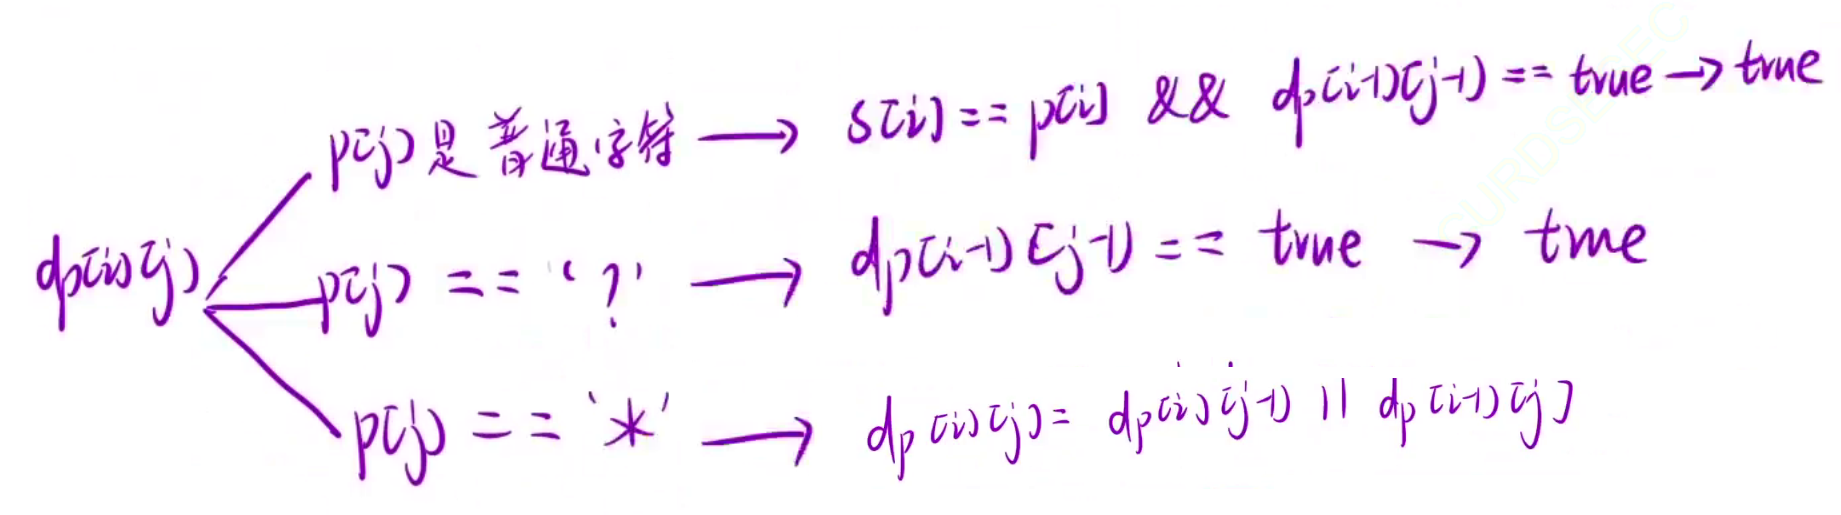 p[j]是普通字符 → s[i] == p[i] && dp[i-1][j-1] == true → true
dp[i][j]
p[j] == '?' → dp[i-1][j-1] == true → true
p[j] == '*' → dp[i][j] = dp[i][j-1] || dp[i-1][j]